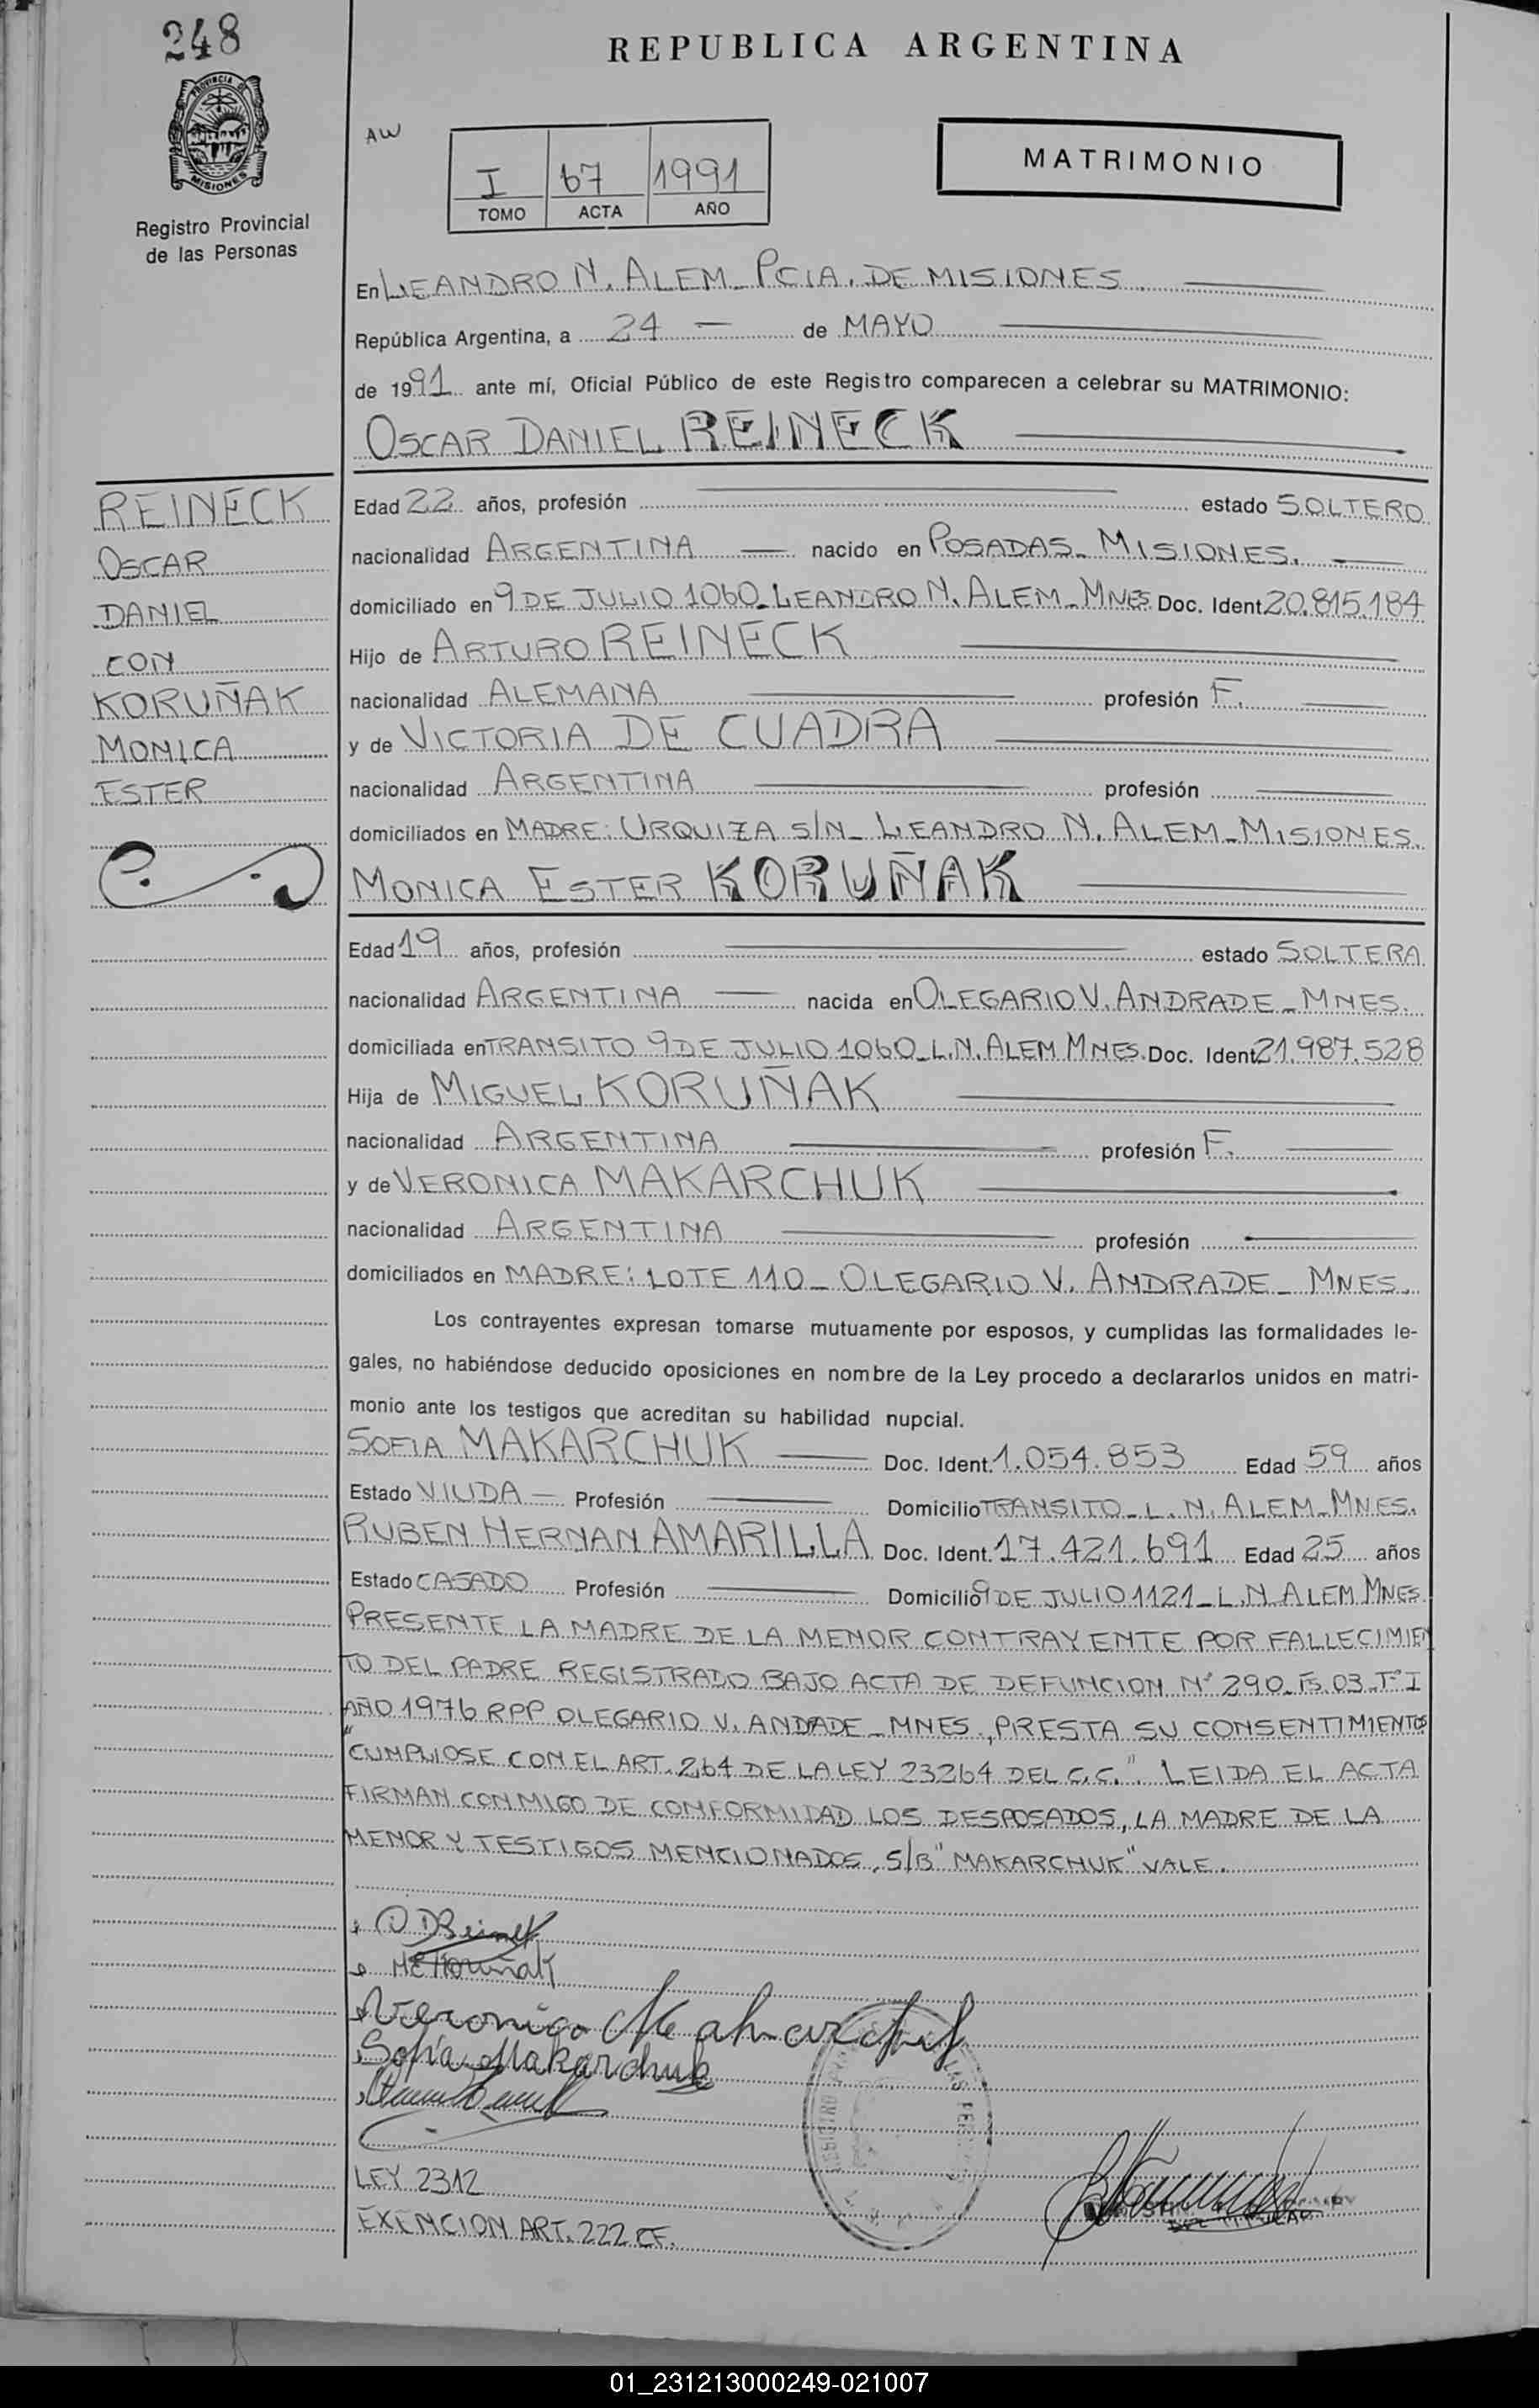 248
REPUBLICA ARGENTINA
PROVINCIA DE
MISIONES
Registro Provincial
de las Personas
AW
I 67 1991
TOMO ACTA AÑO
MATRIMONIO
En LEANDRO N. ALEM_ PCIA. DE MISIONES.
República Argentina, a 24 — de MAYO
de 1991 ante mí, Oficial Público de este Registro comparecen a celebrar su MATRIMONIO:
OSCAR DANIEL REINECK
REINECK
OSCAR
DANIEL
CON
KORUÑAK
MONICA
ESTER
Edad 22 años, profesión estado SOLTERO
nacionalidad ARGENTINA — nacido en POSADAS_ MISIONES.
domiciliado en 9 DE JULIO 1060_ LEANDRO N. ALEM_ MNES Doc. Ident. 20.815.184
Hijo de ARTURO REINECK
nacionalidad ALEMANA profesión F.
y de VICTORIA DE CUADRA
nacionalidad ARGENTINA profesión
domiciliados en MADRE: URQUIZA S/N_ LEANDRO N. ALEM_ MISIONES.
MONICA ESTER KORUÑAK
Edad 19 años, profesión estado SOLTERA
nacionalidad ARGENTINA — nacida en OLEGARIO V. ANDRADE_ MNES.
domiciliada en TRANSITO 9 DE JULIO 1060_ L.N. ALEM MNES. Doc. Ident. 21.987.528
Hija de MIGUEL KORUÑAK
nacionalidad ARGENTINA profesión F.
y de VERONICA MAKARCHUK
nacionalidad ARGENTINA profesión
domiciliados en MADRE: LOTE 110_ OLEGARIO V. ANDRADE_ MNES.
Los contrayentes expresan tomarse mutuamente por esposos, y cumplidas las formalidades le-
gales, no habiéndose deducido oposiciones en nombre de la Ley procedo a declararlos unidos en matri-
monio ante los testigos que acreditan su habilidad nupcial.
SOFIA MAKARCHUK Doc. Ident. 1.054.853 Edad 59 años
Estado VIUDA — Profesión Domicilio TRANSITO_ L. N. ALEM_ MNES.
RUBEN HERNAN AMARILLA Doc. Ident. 17.421.691 Edad 25 años
Estado CASADO Profesión Domicilio 9 DE JULIO 1121_ L.N ALEM MNES.
PRESENTE LA MADRE DE LA MENOR CONTRAYENTE POR FALLECIMIEN
TO DEL PADRE REGISTRADO BAJO ACTA DE DEFUNCION Nº 290_ Fs. 03_ Tº I
AÑO 1976 RPP OLEGARIO V. ANDADE_ MNES., PRESTA SU CONSENTIMIENTOS
"CUMPLIOSE CON EL ART. 264 DE LA LEY 23264 DEL C.C.". LEIDA EL ACTA
FIRMAN CONMIGO DE CONFORMIDAD LOS DESPOSADOS, LA MADRE DE LA
MENOR Y TESTIGOS MENCIONADOS. S/B "MAKARCHUK" VALE.
ODReineck
MEKoruñak
Veronica Makarchuk
Sofia Makarchuk
LEY 2312
EXENCION ART. 222 CF.
01_231213000249-021007